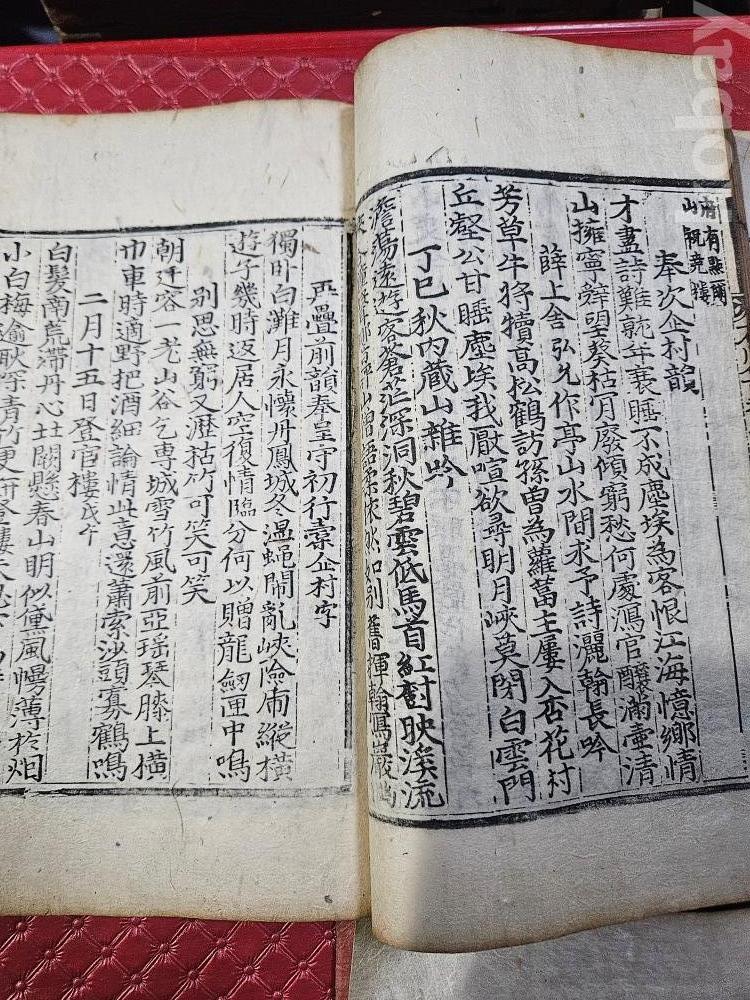 奉次企村韻
才盡詩難就年衰睡不成塵埃為客恨江海憶鄉情
山擁寧辭望葵枯月廢傾窮愁何處瀉官釀滿壺清
薛上舍弘允作亭山水間求予詩灑翰長吟
芳草牛將犢高松鶴訪孫曾為蘿葍主屢入杏花村
丘壑公甘睡塵埃我厭喧欲尋明月峽莫閉白雲門
丁巳秋內藏山雜吟
澹蕩遠遊客蒼茫深洞秋碧雲低馬首紅樹映溪流
再疊前韻奉皇守初行稾企村字
獨臥白灘月永懷丹鳳城冬溫蠅鬧亂峽險雨縱橫
遊子幾時返居人空復情臨分何以贈龍劒匣中鳴
別思無窮又瀝枯竹可笑可笑
朝廷容一老山谷乞專城雪竹風前亞瑤琴膝上橫
巾車時適野把酒細論情此意還蕭索沙頭寡鶴鳴
二月十五日登官樓戊午
白髮南荒滯丹心北闕懸春山明似黛風幔薄於烟
小白梅逾耿深青竹更姸登樓
obay